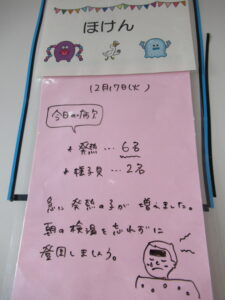 ほけん
12月17日(火)
今日の病欠
* 発熱…6名
* 様子見…2名
急に発熱の子が増えました。
朝の検温を忘れずに
登園しましょう。